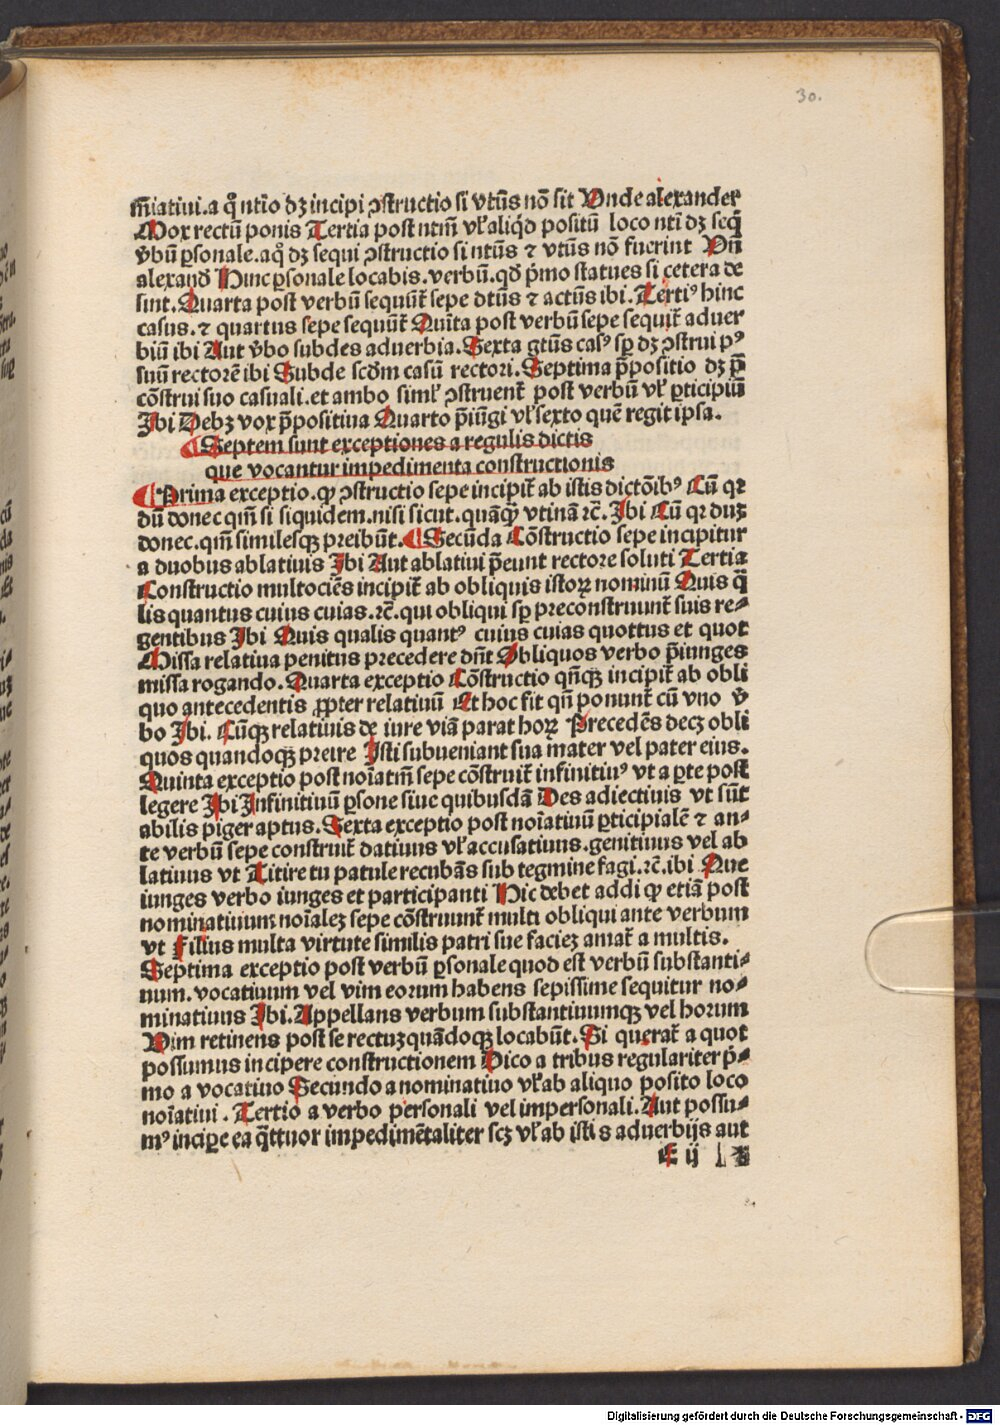 30.
m̄iatiui.a qͦ ntīo dꝫ incipi ꝯstructio si vtūs nō sit Unde alexander
Mox rectū ponis Tertia post ntm̄ vł aliq̇d positū loco ntī dꝫ seq̄
v̄bū ꝑsonale.a qͦ dꝫ sequi ꝯstructio si ntūs ⁊ vtūs nō fuerint Un̄
alexand̄ Hinc ꝑsonale locabis.verbū.qđ p̄mo statues si cetera de
sint.Quarta post verbū sequūt̄ sepe dtūs ⁊ actūs ibi.Tertiꝰ hinc
casus.⁊ quartus sepe sequūt̄ Quīta post verbū sepe sequit̄ aduer
biū ibi Aut v̄bo subdes aduerbia.Sexta gtūs casꝰ sꝑ dꝫ ꝯstrui pꝰ
suū rectorē ibi Subde scđm casū rectori.Septima p̄positio dꝫ p̄
cōstrui suo casuali.et ambo simł ꝯstruent̄ post verbū vł ꝑticipiū
Jbi Debꝫ vox p̄positiua Quarto p̄iūgi vł sexto quē regit ipsa.
¶ Septem sunt exceptiones a regulis dictis
que vocantur impedimenta constructionis
¶ Prima exceptio.ꝙ ꝯstructio sepe incipit̄ ab istis dictōibꝰ Cū qꝛ
dū donec qm̄ si siquidem.nisi sicut.quāꝙ vtinā ⁊c̄. Jbi Cū qꝛ duꝫ
donec.qm̄ similesqꝫ preibūt.¶ Secūda Cōstructio sepe incipitur
a duobus ablatiuis Jbi Aut ablatiui p̄eunt rectore soluti Tertia
Constructio multociēs incipit̄ ab obliquis istoꝝ nominū Quis q̄
lis quantus cuius cuias.⁊c̄.qui obliqui sꝑ preconstruunt̄ suis re-
gentibus Jbi Quis qualis quantꝰ cuius cuias quottus et quot
Missa relatiua penitus precedere dn̄t Obliquos verbo p̄iunges
missa rogando.Quarta exceptio Cōstructio qn̄qꝫ incipit̄ ab obli
quo antecedentis ꝓpter relatiuū Et hoc fit qn̄ ponunt̄ cū vno v̄
bo Jbi. Cūqꝫ relatiuis de iure viā parat hoꝝ Precedēs decꝫ obli
quos quandoqꝫ preire Jsti subueniant sua mater vel pater eius.
Quinta exceptio post noīatm̄ sepe cōstruit̄ infinitiuꝰ vt a ꝑte post
legere Jbi Jnfinitiuū ꝑsone siue quibusdā Des adiectiuis vt sūt
abilis piger aptus.Sexta exceptio post noīatiuū ꝑticipialē ⁊ an-
te verbū sepe construit̄ datiuus vł accusatiuus.genitiuus vel ab
latiuus vt Titire tu patule recubās sub tegmine fagi.⁊c̄.ibi Que
iunges verbo iunges et participanti Hic debet addi ꝙ etiā post
nominatiuum noīaleꝫ sepe cōstruunt̄ multi obliqui ante verbum
vt Filius multa virtute similis patri sue facieꝫ amat̄ a multis.
Septima exceptio post verbū ꝑsonale quod est verbū substanti-
uum.vocatiuum vel vim eorum habens sepissime sequitur no-
minatiuus Jbi.Appellans verbum substantiuumqꝫ vel horum
Vim retinens post se rectuꝫ quādoqꝫ locabūt.Si querat̄ a quot
possumus incipere constructionem Dico a tribus regulariter p̄-
mo a vocatiuo Secundo a nominatiuo vł ab aliquo posito loco
noīatiui . Tertio a verbo personali vel impersonali.Aut possu-
mꝰ inciꝑe ea q̄ttuor impedimētaliter scꝫ vł ab isti s aduerbijs aut
E ij
Digitalisierung gefördert durch die Deutsche Forschungsgemeinschaft - DFG